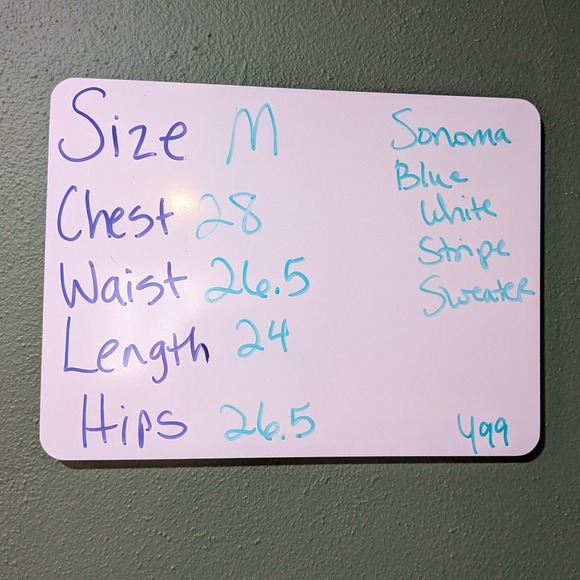 Size M
Chest 28
Waist 26.5
Length 24
Hips 26.5
Sonoma
Blue
White
Stripe
Sweater
499